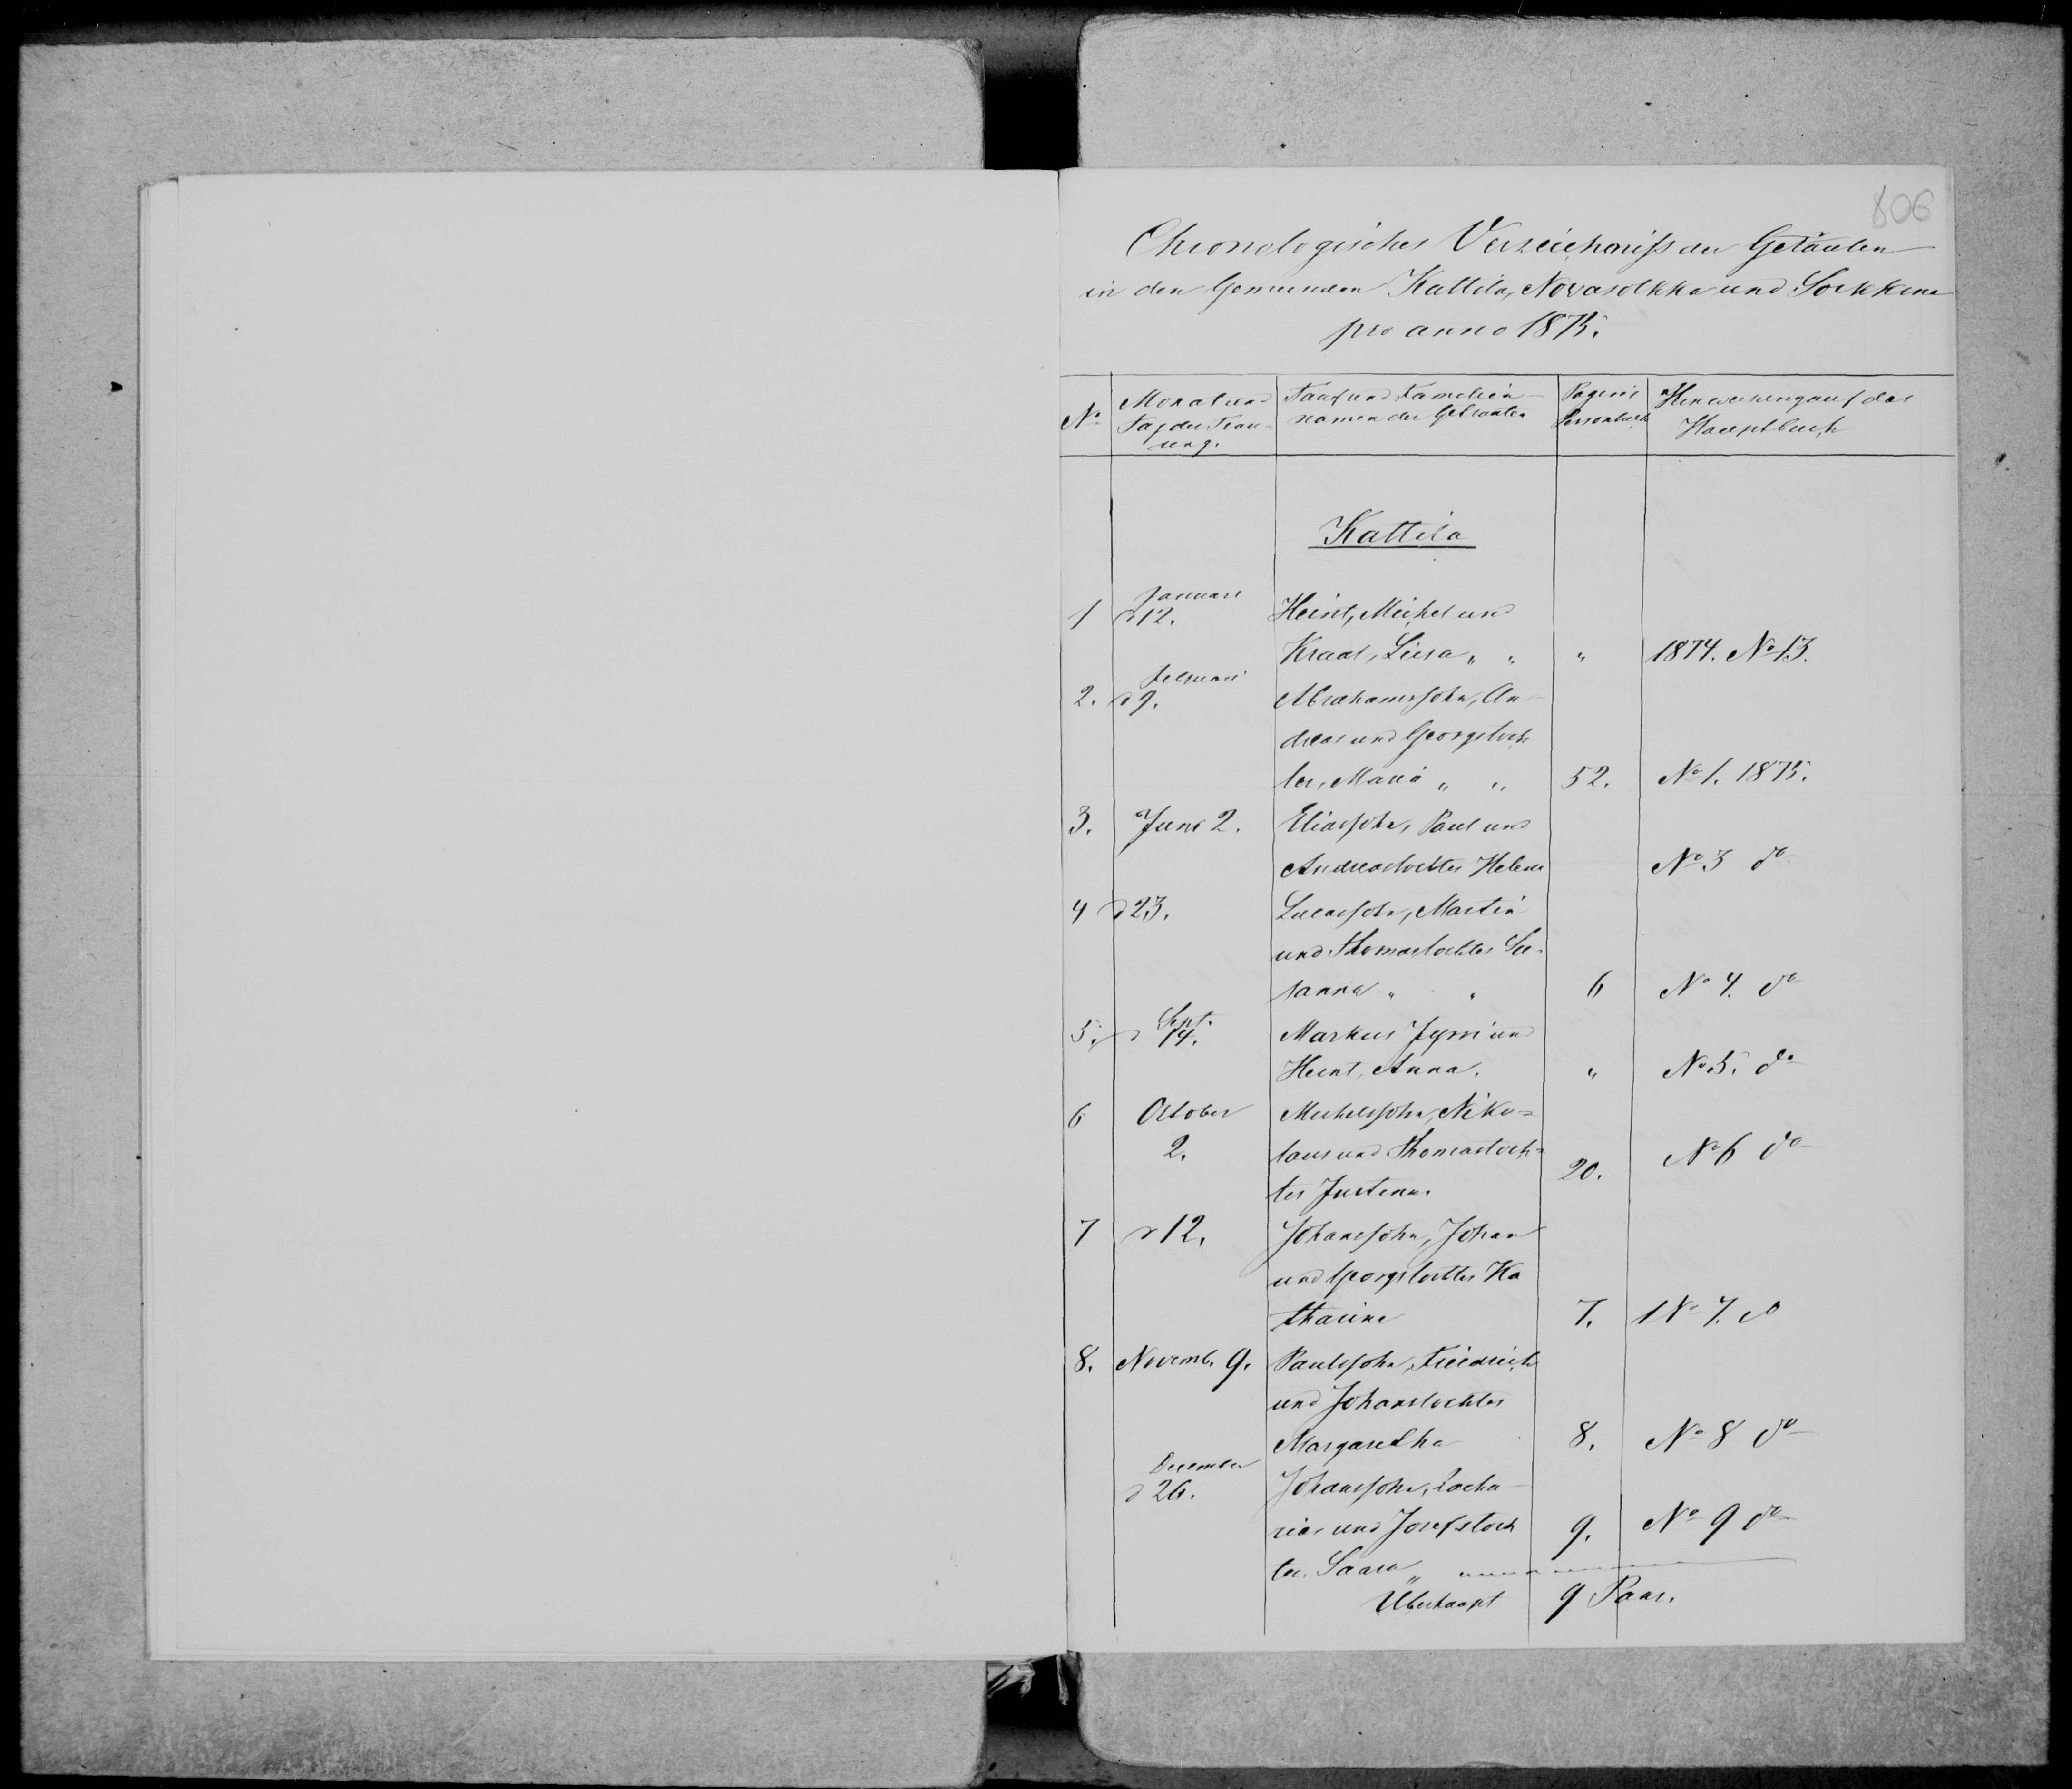 806
Chronologisches Verzeichniß der Getauten
in den Gemeinden Kattila, Novasolkka und Soikkina
pro anno 1875.
No Monat und Tauf und Familien- Pag im Hinweisung auf das
Tag der Trau- namen der Getrauten Personbuch Hauptbuch
ung.
Kattila
Januari
1 d 12. Heint, Michel und
Kraat, Liisa " " " 1874. No 13.
Februari
2. d 9. Abrahamssohn, An-
dreas und Georgstoch
ter, Maria " " 52. No 1. 1875.
3. Juni 2. Eliassohn, Paul und
Andreastochter Helena No 3 do
4 d 23. Lucassohn, Martin
und Thomastochter Su-
sanna " " 6 No 4. do
Sept.
5. d 14. Markus Jyrri und
Heint, Anna. " No 5. do
6 October Michelssohn, Niko=
2. laus und Thomastoch= 20. No 6 do
ter Justina.
7 d 12. Johanssohn, Johan
und Georgstochter Ka
tharina 7. No 7. do
8. Novemb. 9. Paulssohn, Friedrich
und Johanstochter
Margaretha 8. No 8 do
December
d 26. Johanssohn, Zacha-
rias und Josefstoch 9. No 9 do
ter. Saara "
Überhaupt 9 Paar.